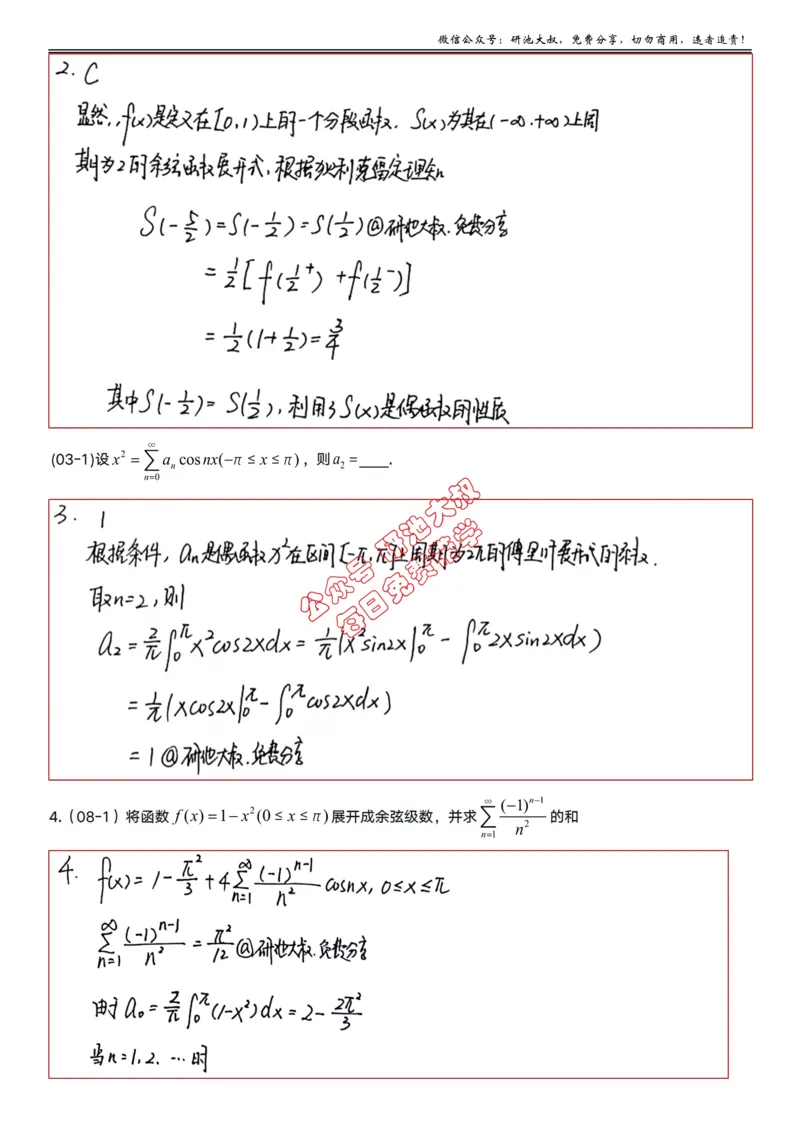 微信公众号：研池大叔，免费分享，切勿商用，违者追责！
2. C
显然，f(x)是定义在[0,1)上的一个分段函数. S(x)为其在(-∞,+∞)上周
期为2的余弦函数展开式，根据狄利克雷定理知
S(-5/2)=S(-1/2)=S(1/2)@研池大叔.免费分享
=1/2[f(1/2⁺)+f(1/2⁻)]
=1/2(1+1/2)=3/4
其中S(-1/2)=S(1/2)，利用了S(x)是偶函数的性质
(03-1)设x²=∑_{n=0}^{∞}a_n cosnx(-π≤x≤π)，则a₂=____.
3. 1
根据条件，a_n是偶函数x²在区间[-π,π]上周期为2π的傅里叶展开式的系数.
取n=2，则
a₂=2/π∫₀^π x²cos2xdx=1/π(x²sin2x|₀^π-∫₀^π 2xsin2xdx)
=1/π(xcos2x|₀^π-∫₀^π cos2xdx)
=1@研池大叔.免费分享
公众号 研池大叔
每日免费带学
4.（08-1）将函数 f(x)=1-x²(0≤x≤π)展开成余弦级数，并求∑_{n=1}^{∞}(-1)^{n-1}/n² 的和
4. f(x)=1-π²/3+4∑_{n=1}^{∞}(-1)^{n-1}/n² cosnx, 0≤x≤π
∑_{n=1}^{∞}(-1)^{n-1}/n²=π²/12@研池大叔.免费分享
由于a₀=2/π∫₀^π(1-x²)dx=2-2π²/3
当n=1,2,…时